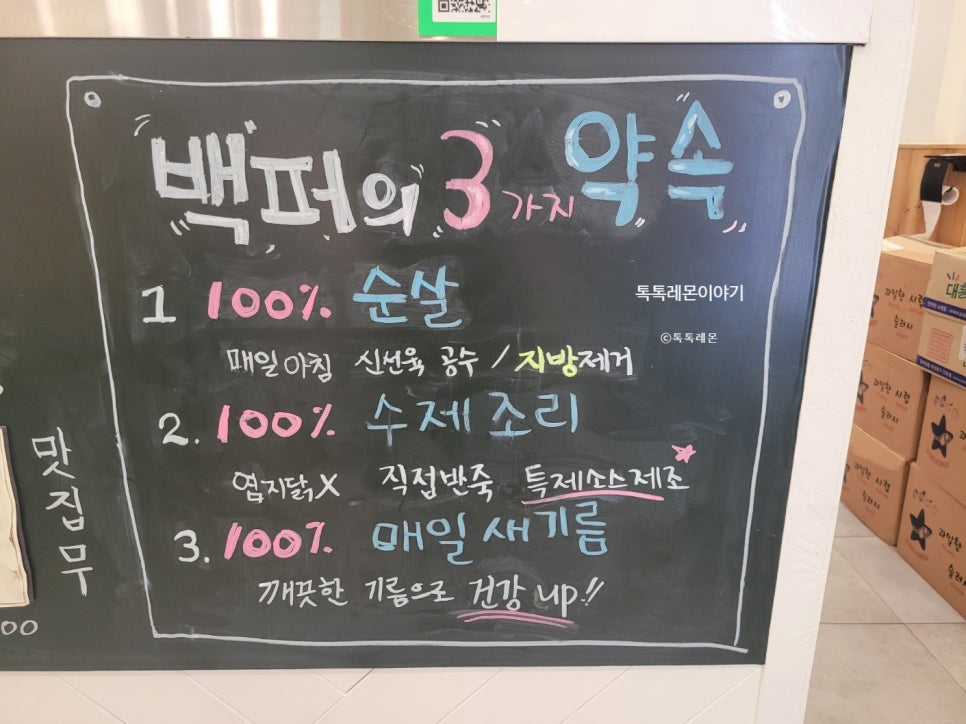 백퍼의 3가지 약속
1 100% 순살
톡톡레몬이야기
©톡톡레몬
매일 아침 신선육 공수 / 지방제거
2. 100% 수제 조리
염지닭X 직접반죽 특제소스제조
3. 100% 매일 새기름
깨끗한 기름으로 건강 up!!
맛집무
00
과일한 사럽
슬러시
과일한 사럽
슬러시